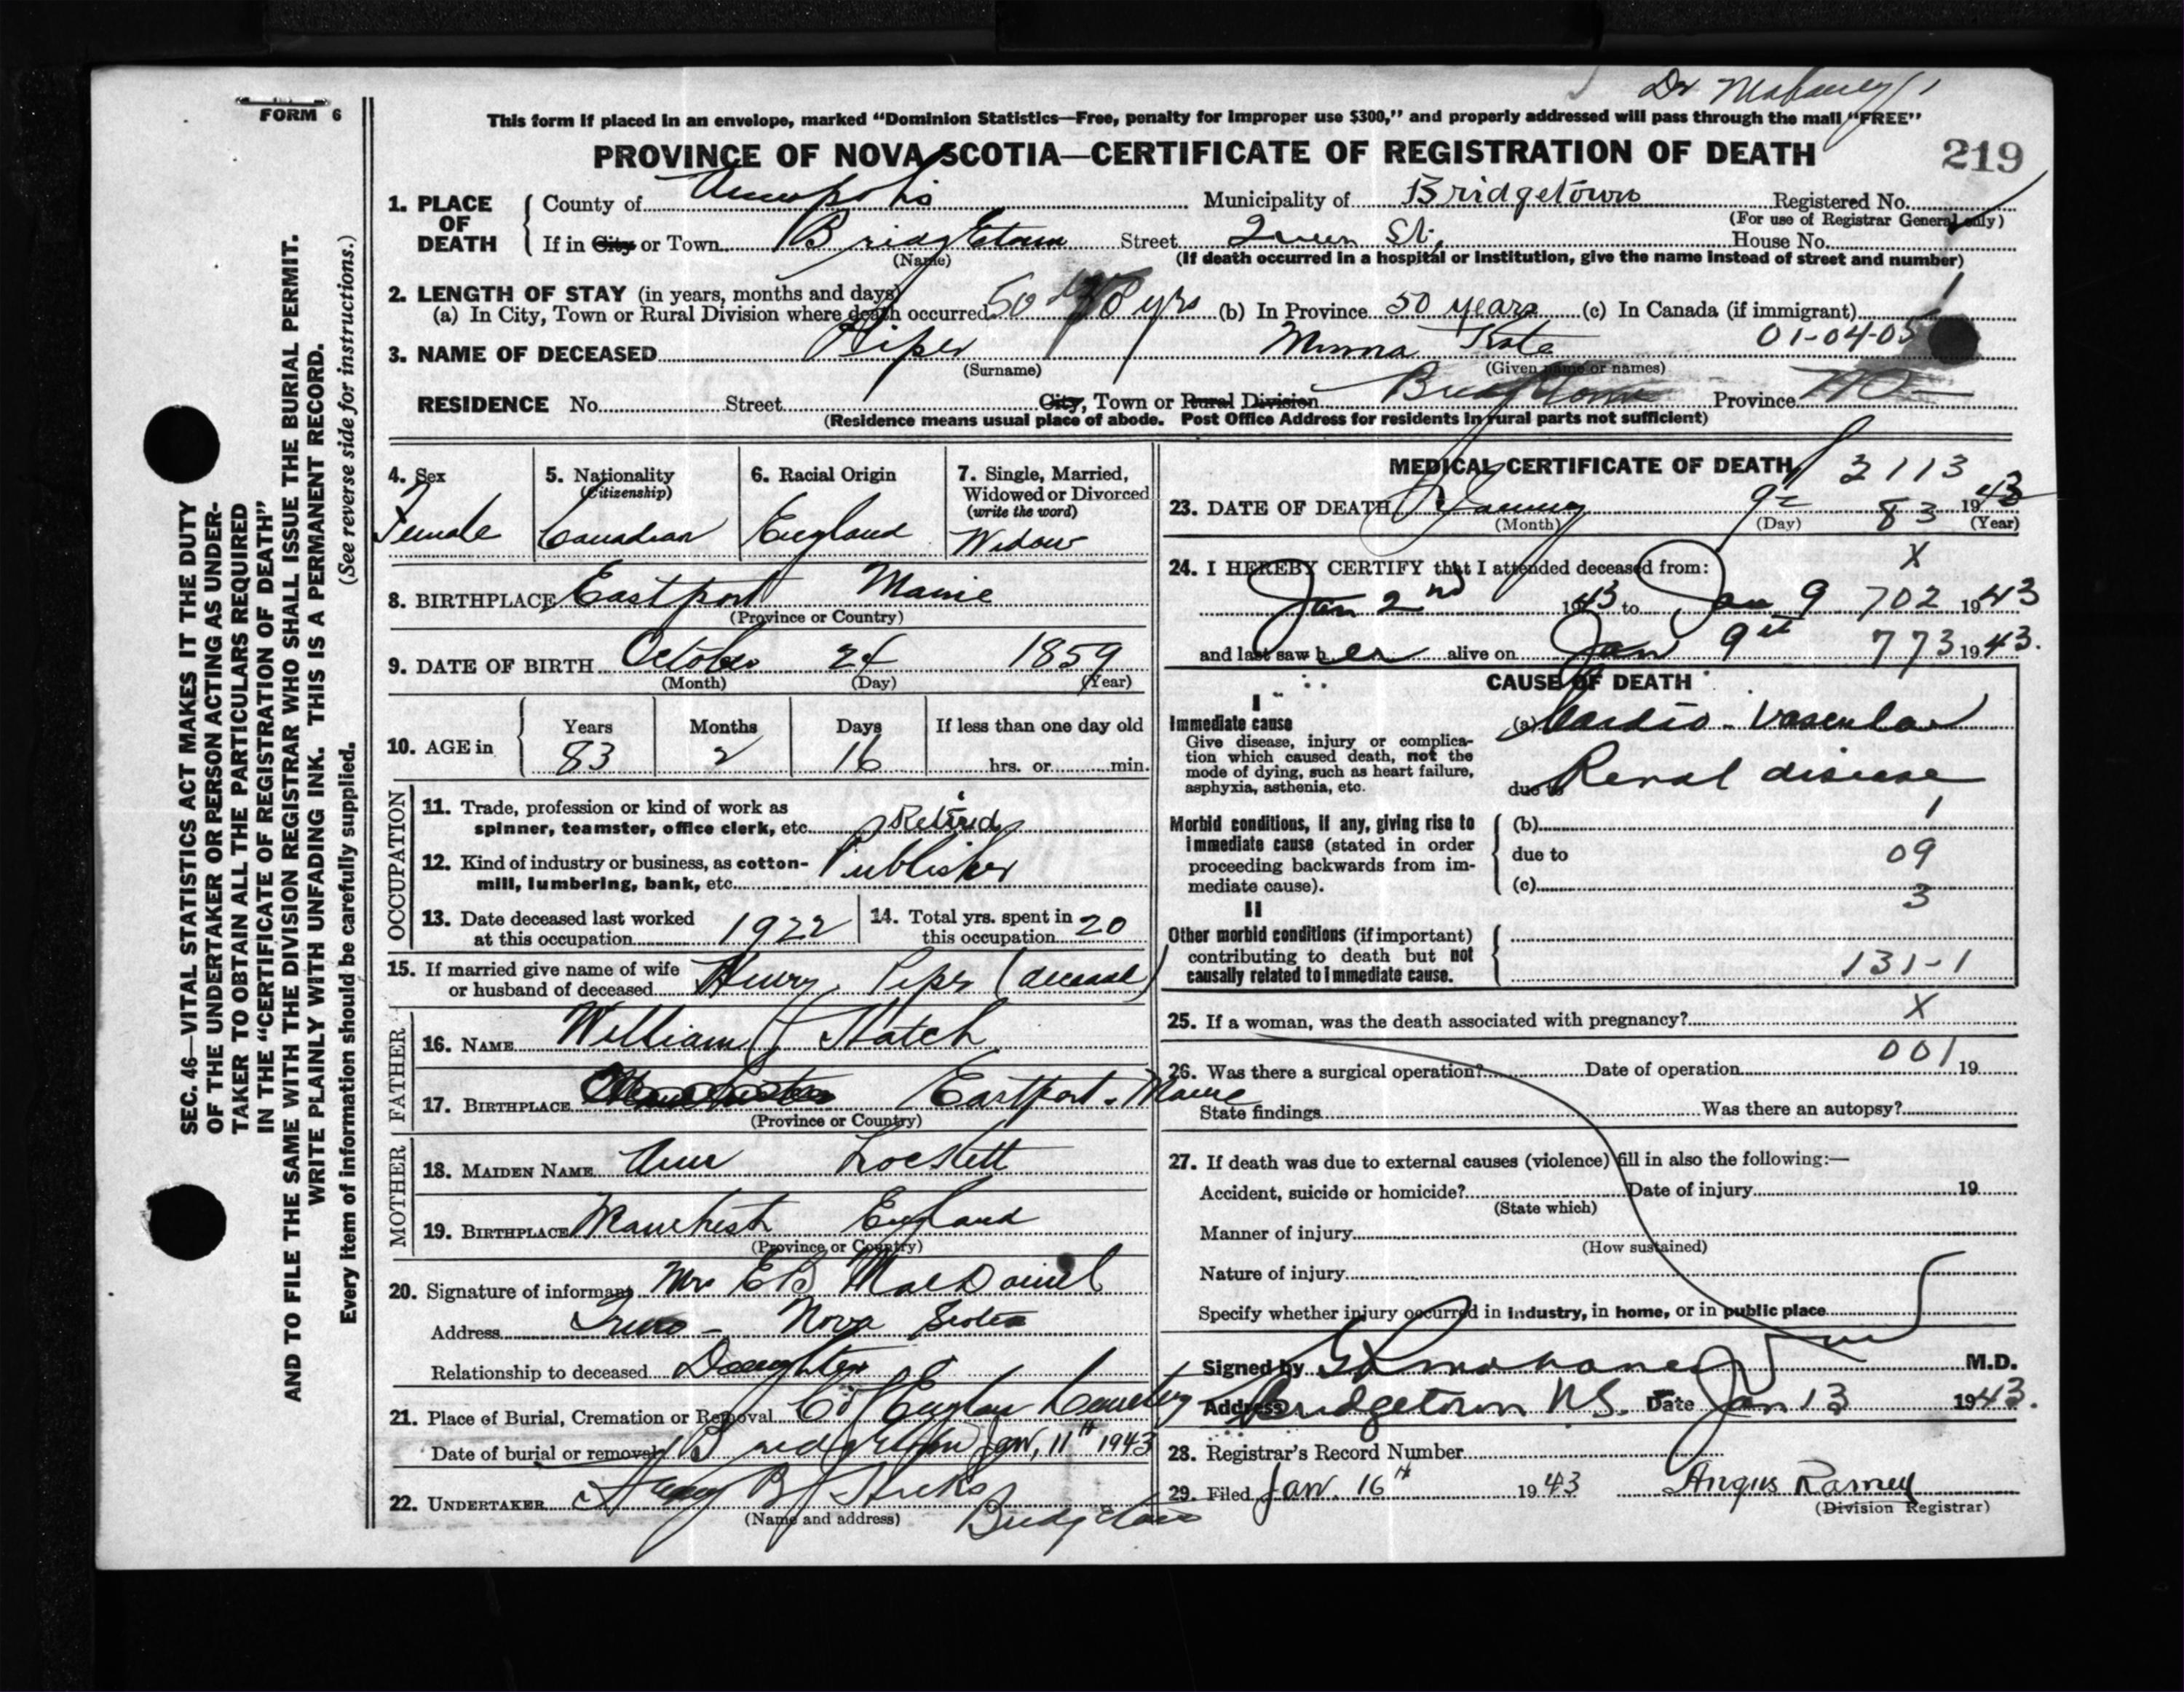 Dr Mahaney
FORM 6
This form if placed in an envelope, marked "Dominion Statistics—Free, penalty for improper use $300," and properly addressed will pass through the mail "FREE"
PROVINCE OF NOVA SCOTIA—CERTIFICATE OF REGISTRATION OF DEATH
219
1. PLACE OF DEATH County of Annapolis Municipality of Bridgetown Registered No.
(For use of Registrar General only)
If in City or Town Bridgetown Street Queen St. House No.
(Name) (If death occurred in a hospital or institution, give the name instead of street and number)
2. LENGTH OF STAY (in years, months and days)
(a) In City, Town or Rural Division where death occurred 50 yrs (b) In Province 50 years (c) In Canada (if immigrant)
01-04-05
3. NAME OF DECEASED Piper Minna Kate
(Surname) (Given name or names)
RESIDENCE No. Street City, Town or Rural Division Bridgetown Province
(Residence means usual place of abode. Post Office Address for residents in rural parts not sufficient)
4. Sex Female
5. Nationality (Citizenship) Canadian
6. Racial Origin England
7. Single, Married, Widowed or Divorced (write the word) Widow
8. BIRTHPLACE Eastport Maine
(Province or Country)
9. DATE OF BIRTH October 24 1859
(Month) (Day) (Year)
10. AGE in Years 83 Months 2 Days 16 If less than one day old hrs. or min.
OCCUPATION
11. Trade, profession or kind of work as spinner, teamster, office clerk, etc. Retired
12. Kind of industry or business, as cotton-mill, lumbering, bank, etc. Publisher
13. Date deceased last worked at this occupation 1922
14. Total yrs. spent in this occupation 20
15. If married give name of wife or husband of deceased Henry Piper (deceased)
FATHER
16. NAME William Hatch
17. BIRTHPLACE Eastport. Maine
(Province or Country)
MOTHER
18. MAIDEN NAME Ann Lockett
19. BIRTHPLACE Manchest England
(Province or Country)
20. Signature of informant Mrs E B MacDaniel
Address Truro - Nova Scotia
Relationship to deceased Daughter
21. Place of Burial, Cremation or Removal C of England Cemetery
Date of burial or removal Bridgetown Jan, 11th 1943
22. UNDERTAKER B Hicks
(Name and address) Bridgetown
MEDICAL CERTIFICATE OF DEATH
2113
23. DATE OF DEATH January 9th 83 1943
(Month) (Day) (Year)
X
24. I HEREBY CERTIFY that I attended deceased from:
Jan 2nd 1943 to Jan 9 702 1943
and last saw her alive on Jan 9th 773 1943.
CAUSE OF DEATH
I
Immediate cause (a) Cardio-vascular
Give disease, injury or complication which caused death, not the mode of dying, such as heart failure, asphyxia, asthenia, etc.
due to Renal disease
1
Morbid conditions, if any, giving rise to immediate cause (stated in order proceeding backwards from immediate cause).
(b)
due to 09
(c)
3
II
Other morbid conditions (if important) contributing to death but not causally related to immediate cause.
131-1
25. If a woman, was the death associated with pregnancy? X
001
26. Was there a surgical operation? Date of operation 19
State findings Was there an autopsy?
27. If death was due to external causes (violence) fill in also the following:—
Accident, suicide or homicide? Date of injury 19
(State which)
Manner of injury
(How sustained)
Nature of injury
Specify whether injury occurred in industry, in home, or in public place
Signed by Mahaney M.D.
Address Bridgetown N.S. Date Jan 13 1943.
28. Registrar's Record Number
29. Filed Jan. 16th 1943 Angus Ramey
(Division Registrar)
SEC. 46—VITAL STATISTICS ACT MAKES IT THE DUTY
OF THE UNDERTAKER OR PERSON ACTING AS UNDER-
TAKER TO OBTAIN ALL THE PARTICULARS REQUIRED
IN THE "CERTIFICATE OF REGISTRATION OF DEATH"
AND TO FILE THE SAME WITH THE DIVISION REGISTRAR WHO SHALL ISSUE THE BURIAL PERMIT.
WRITE PLAINLY WITH UNFADING INK. THIS IS A PERMANENT RECORD.
Every item of information should be carefully supplied. (See reverse side for instructions.)